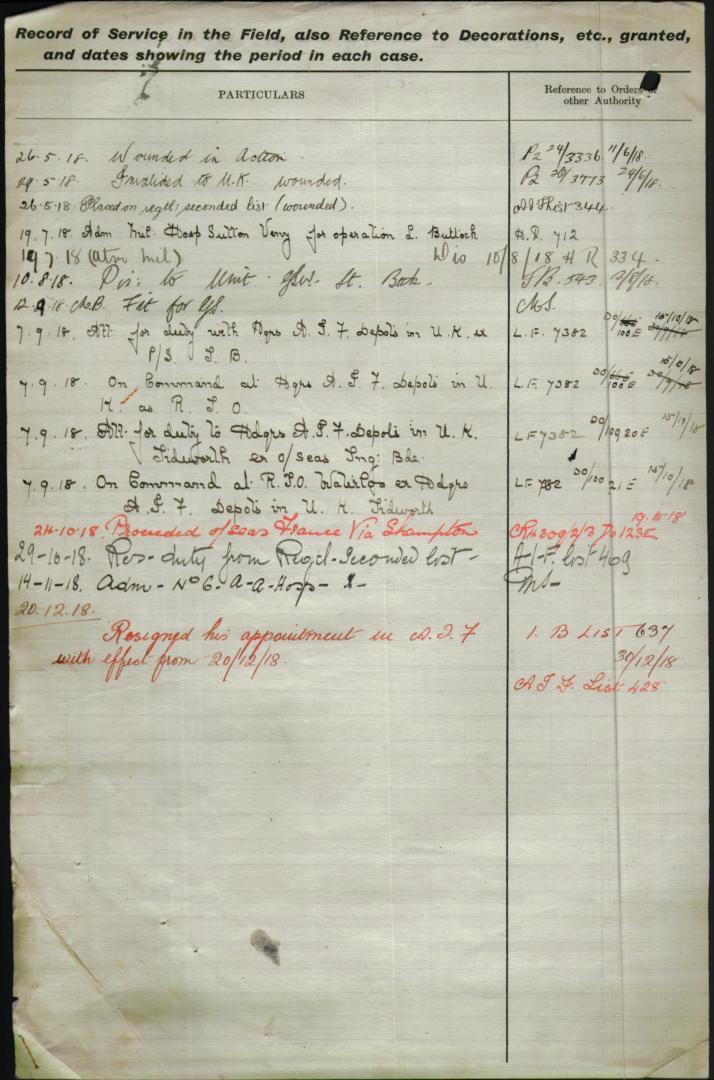 Record of Service in the Field, also Reference to Decorations, etc., granted,
and dates showing the period in each case.
PARTICULARS
Reference to Orders or
other Authority
26.5.18. Wounded in Action.
P2 24/3336 11/6/18.
29.5.18 Invalided to U.K. wounded.
P2 26/3773 24/6/18.
26.5.18 Placed on regtl: seconded list (wounded).
List 344
19.7.18 Adm Mil. Hosp Sutton Veny for operation L. Buttock
H.R. 712
19.7.18 (atm Mil) Dis 10/8/18 H R 334.
10.8.18. Dis: to Unit. GSW. Lt. Butk.
543.
12.9.18. Fit for GS.
M.S.
7.9.18. Att for duty with Hqrs A.I.F. Depots in U.K. ex
P/S. I. B.
L.F. 7382 DO/ 100 E 15/10/18
7.9.18. On Command at Hqrs A.I.F. Depots in U.
K. as R.T.O.
L.F. 7382 DO/ 100 E 15/10/18
7.9.18. Att. for duty to Hdqrs A.I.F. Depots in U.K.
Tidworth ex O/seas Tng: Bde.
LF 7382 DO/100, 20 E 15/10/18
7.9.18. On Command at R.T.O. Waterloo ex Hdqrs
A.I.F. Depots in U.K. Tidworth
LF 782 DO/100 21 E 15/10/18
24.10.18. Proceeded o/seas France Via S'hampton
2/3 Do 123E 19.11.18
29-10-18. Res- duty from Reg'l-Seconded list -
A-I-F. list 409
14-11-18. Adm - No 6 - A-A-Hosp -
20.12.18.
Resigned his appointment in A.I.F
with effect from 20/12/18.
1. B LIST 637
30/12/18.
A I F. List 428